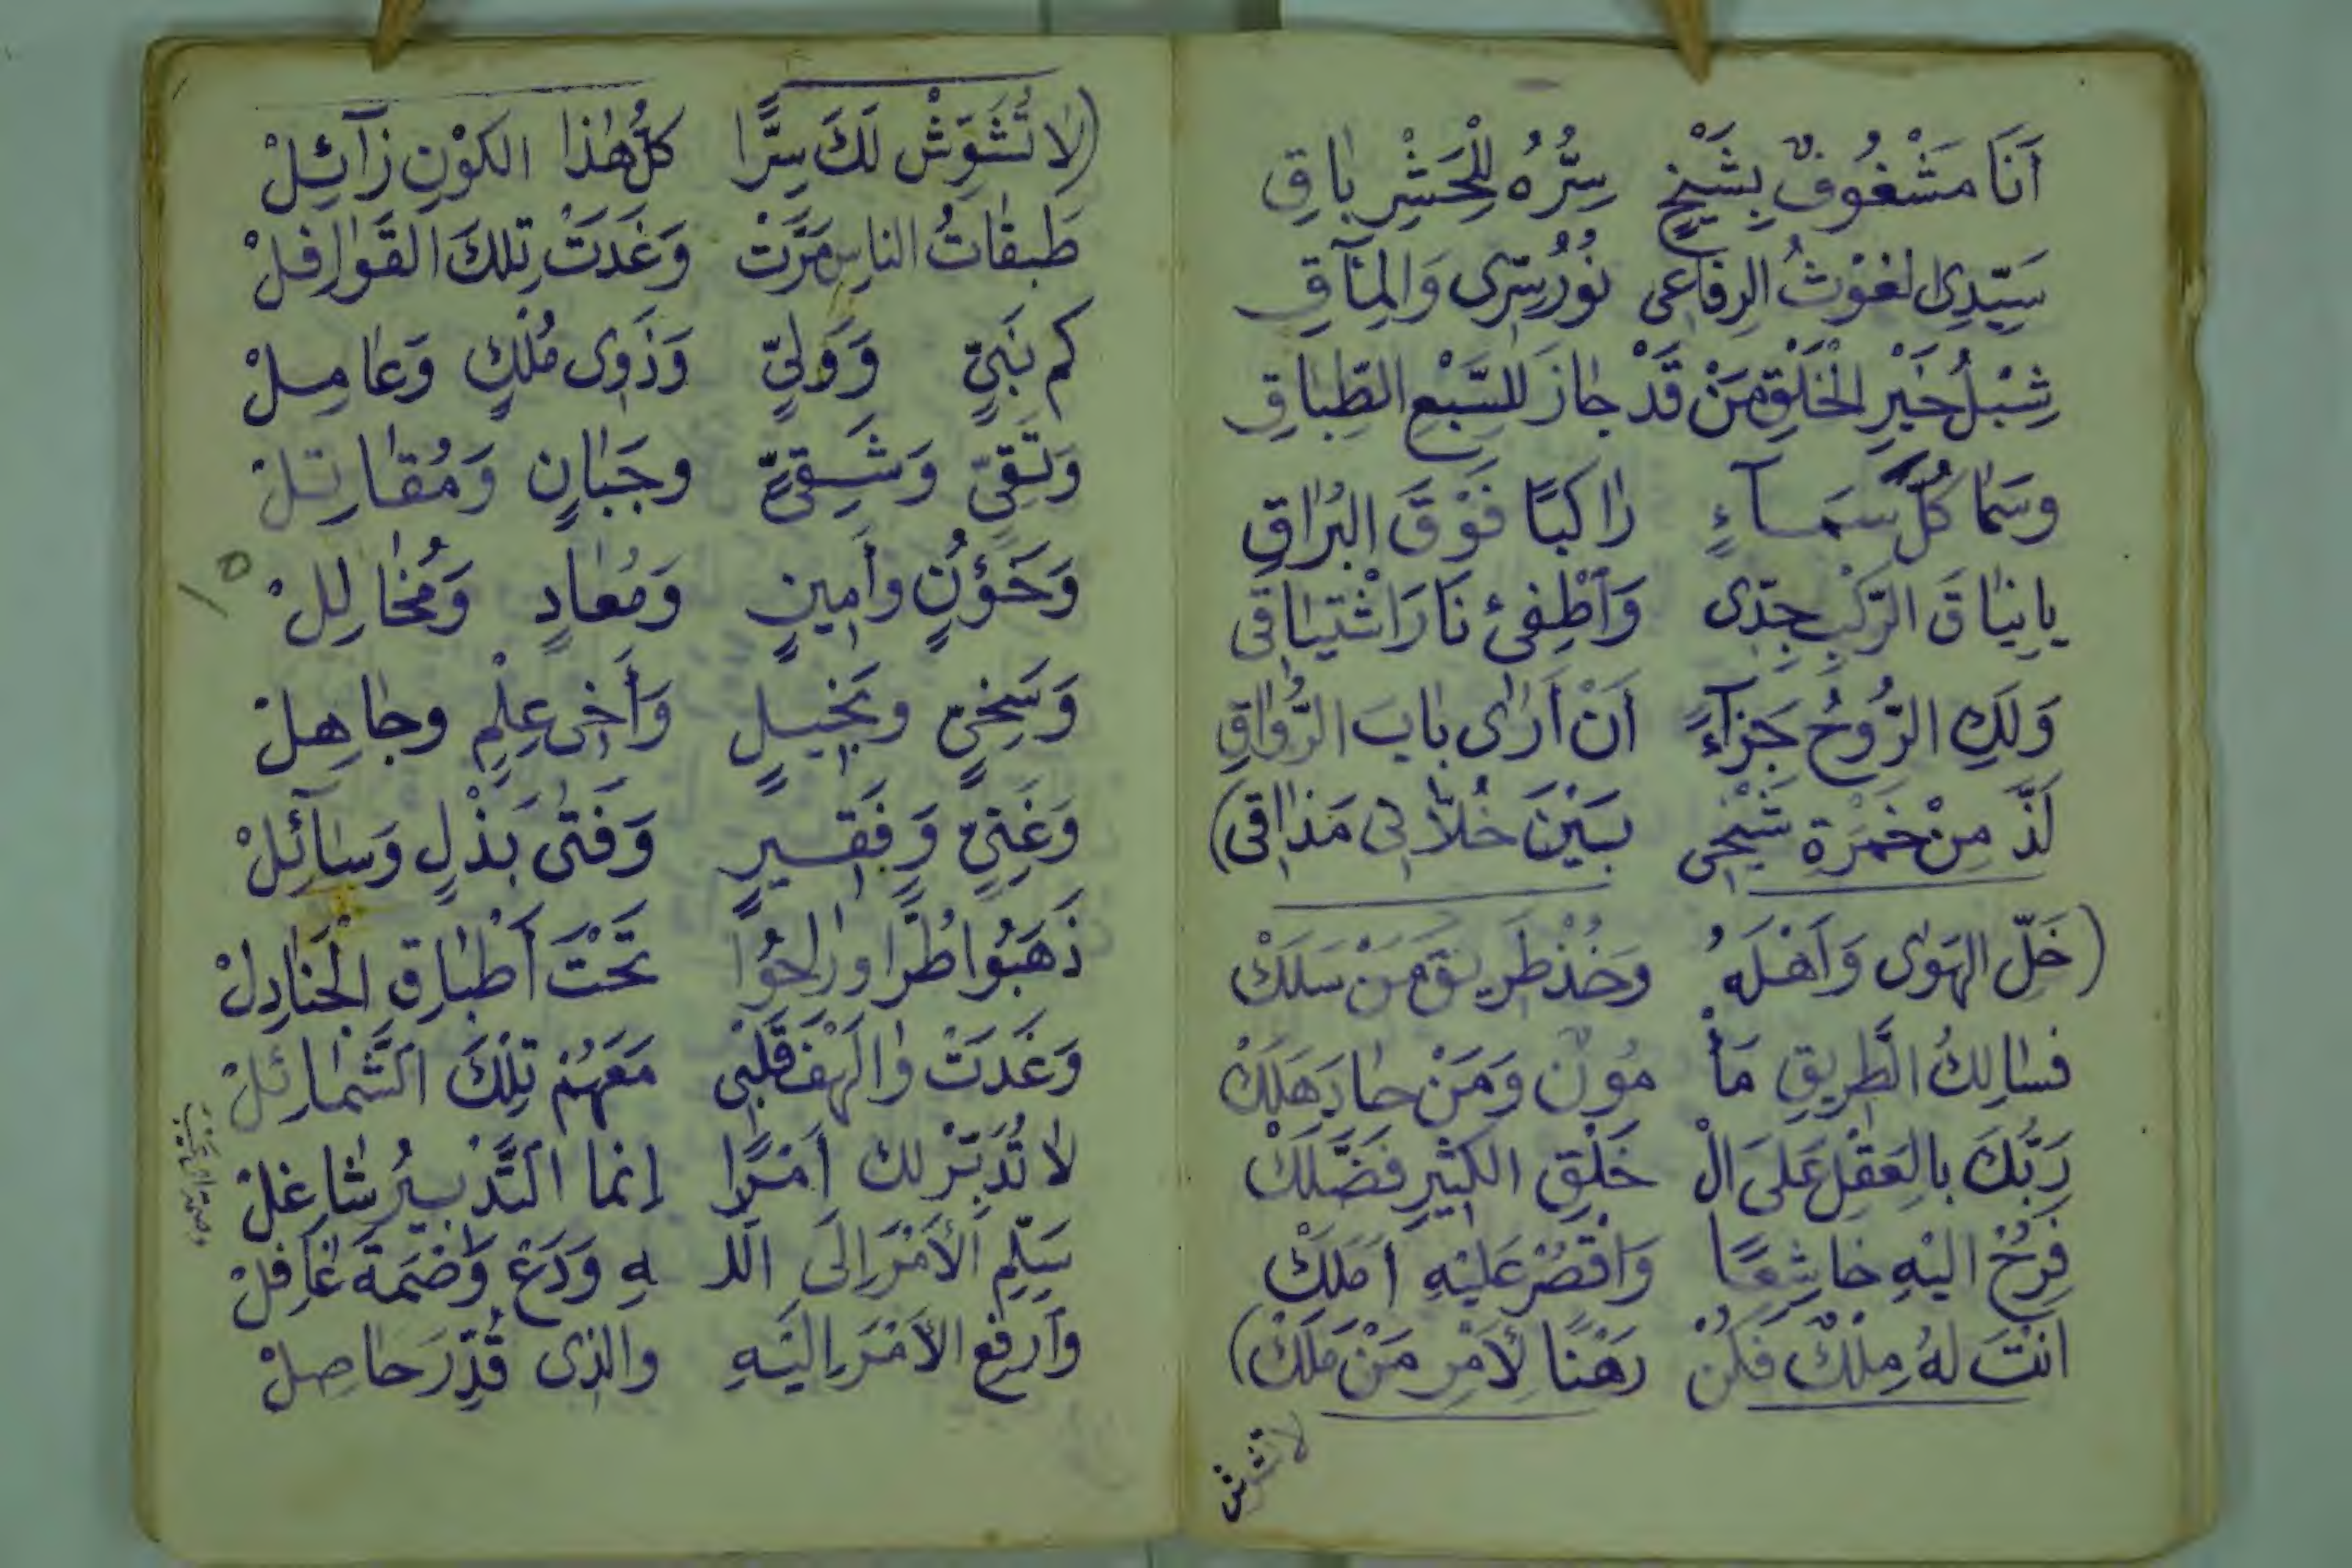 أَنَا مَشْغُوفٌ بِشَيْخٍ سِرُّهُ لِلْحَشْرِ بَاقِ
سَيِّدِي لغَوْثُ الرِفَاعِى نُورُ سِرِّى وَالمَآقِ
شِبْلُ خَيْرِ الْخَلْقِ مَنْ قَدْ جَازَ لِلسَّبْعِ الطِّبَاقِ
وَسَمَا كُلَّ سَمَآءٍ رَاكبًا فَوْقَ البُرَاقِ
يا نِيَاقَ الرَّكْبِ جِدِّى وَأَطْفِئ نَارَ اشْتِيَاقى
وَلَكِ الرُّوحُ جَزَآءً أَنْ أَرَاى بَابَ الرُّوَاقِ
لَذَّ مِنْ خَمْرَةِ شَيْخِى بَيْنَ خُلَّانِى مَذَاقى)
(خَلِّ الهَوَى وَأَهْلَهُ وَخُذْ طَرِيقَ مَنْ سَلَكْ
فسَالِكُ الطَّرِيقِ مَأْ مُونٌ وَمَنْ حَادَ هَلَكْ
رَبُّكَ بالعَقْلِ عَلَى الْ خَلْقِ الكَثِيرِ فَضَّلَكْ
فَرُحْ اليْهِ خَاشِعًا وَاقْصُرْ عَلَيْهِ أَمَلَكْ
انْتَ لهُ مِلْكٌ فَكُنْ رَهْنًا لأَمْرِ مَنْ مَلَكْ)
لا تشوش
(لَا تُشَوِّشْ لَكَ سِرًّا كلُّ هٰذا الكَوْنِ زَآئِلْ
طَبَقَاتُ الناسِ مَرَّتْ وَغَدَتْ تِلكَ القَوَافِلْ
كم نَبِيٍّ وَوَلِيٍّ وَذَوِى مُلْكٍ وَعَامِلْ
وَتَقِيٍّ وَشَقِيٍّ وجَبَانٍ وَمُقَاتِلْ
وَخَؤُنٍ وأَمِينٍ وَمُعَادٍ وَمُخَالِلْ
وَسَخِيٍّ وبَخِيلٍ وَأَخِى عِلْمٍ وجَاهِلْ
وَغَنِيٍّ وَفَقِيرٍ وَفَتَى بَذْلٍ وَسَآئِلْ
ذَهَبُوا طُرًّا ورَاحُوا تَحْتَ أَطْبَاقِ الْجَنَادِلْ
وَغَدَتْ وَا لَهْفَ قَلْبِى مَعَهُمْ تِلْكَ الشَّمَائلْ
لا تُدَبِّرْ لك أَمْرًا إنما التَّدْبِيرُ شَاغِلْ
سَلِّمِ الأَمْرَ إلَى اللـ ـهِ وَدَعْ وَصْمَةَ غَافِلْ
وَارفَعِ الأَمْرَ إلَيْهِ والذِى قُدِّرَ حَاصِلْ